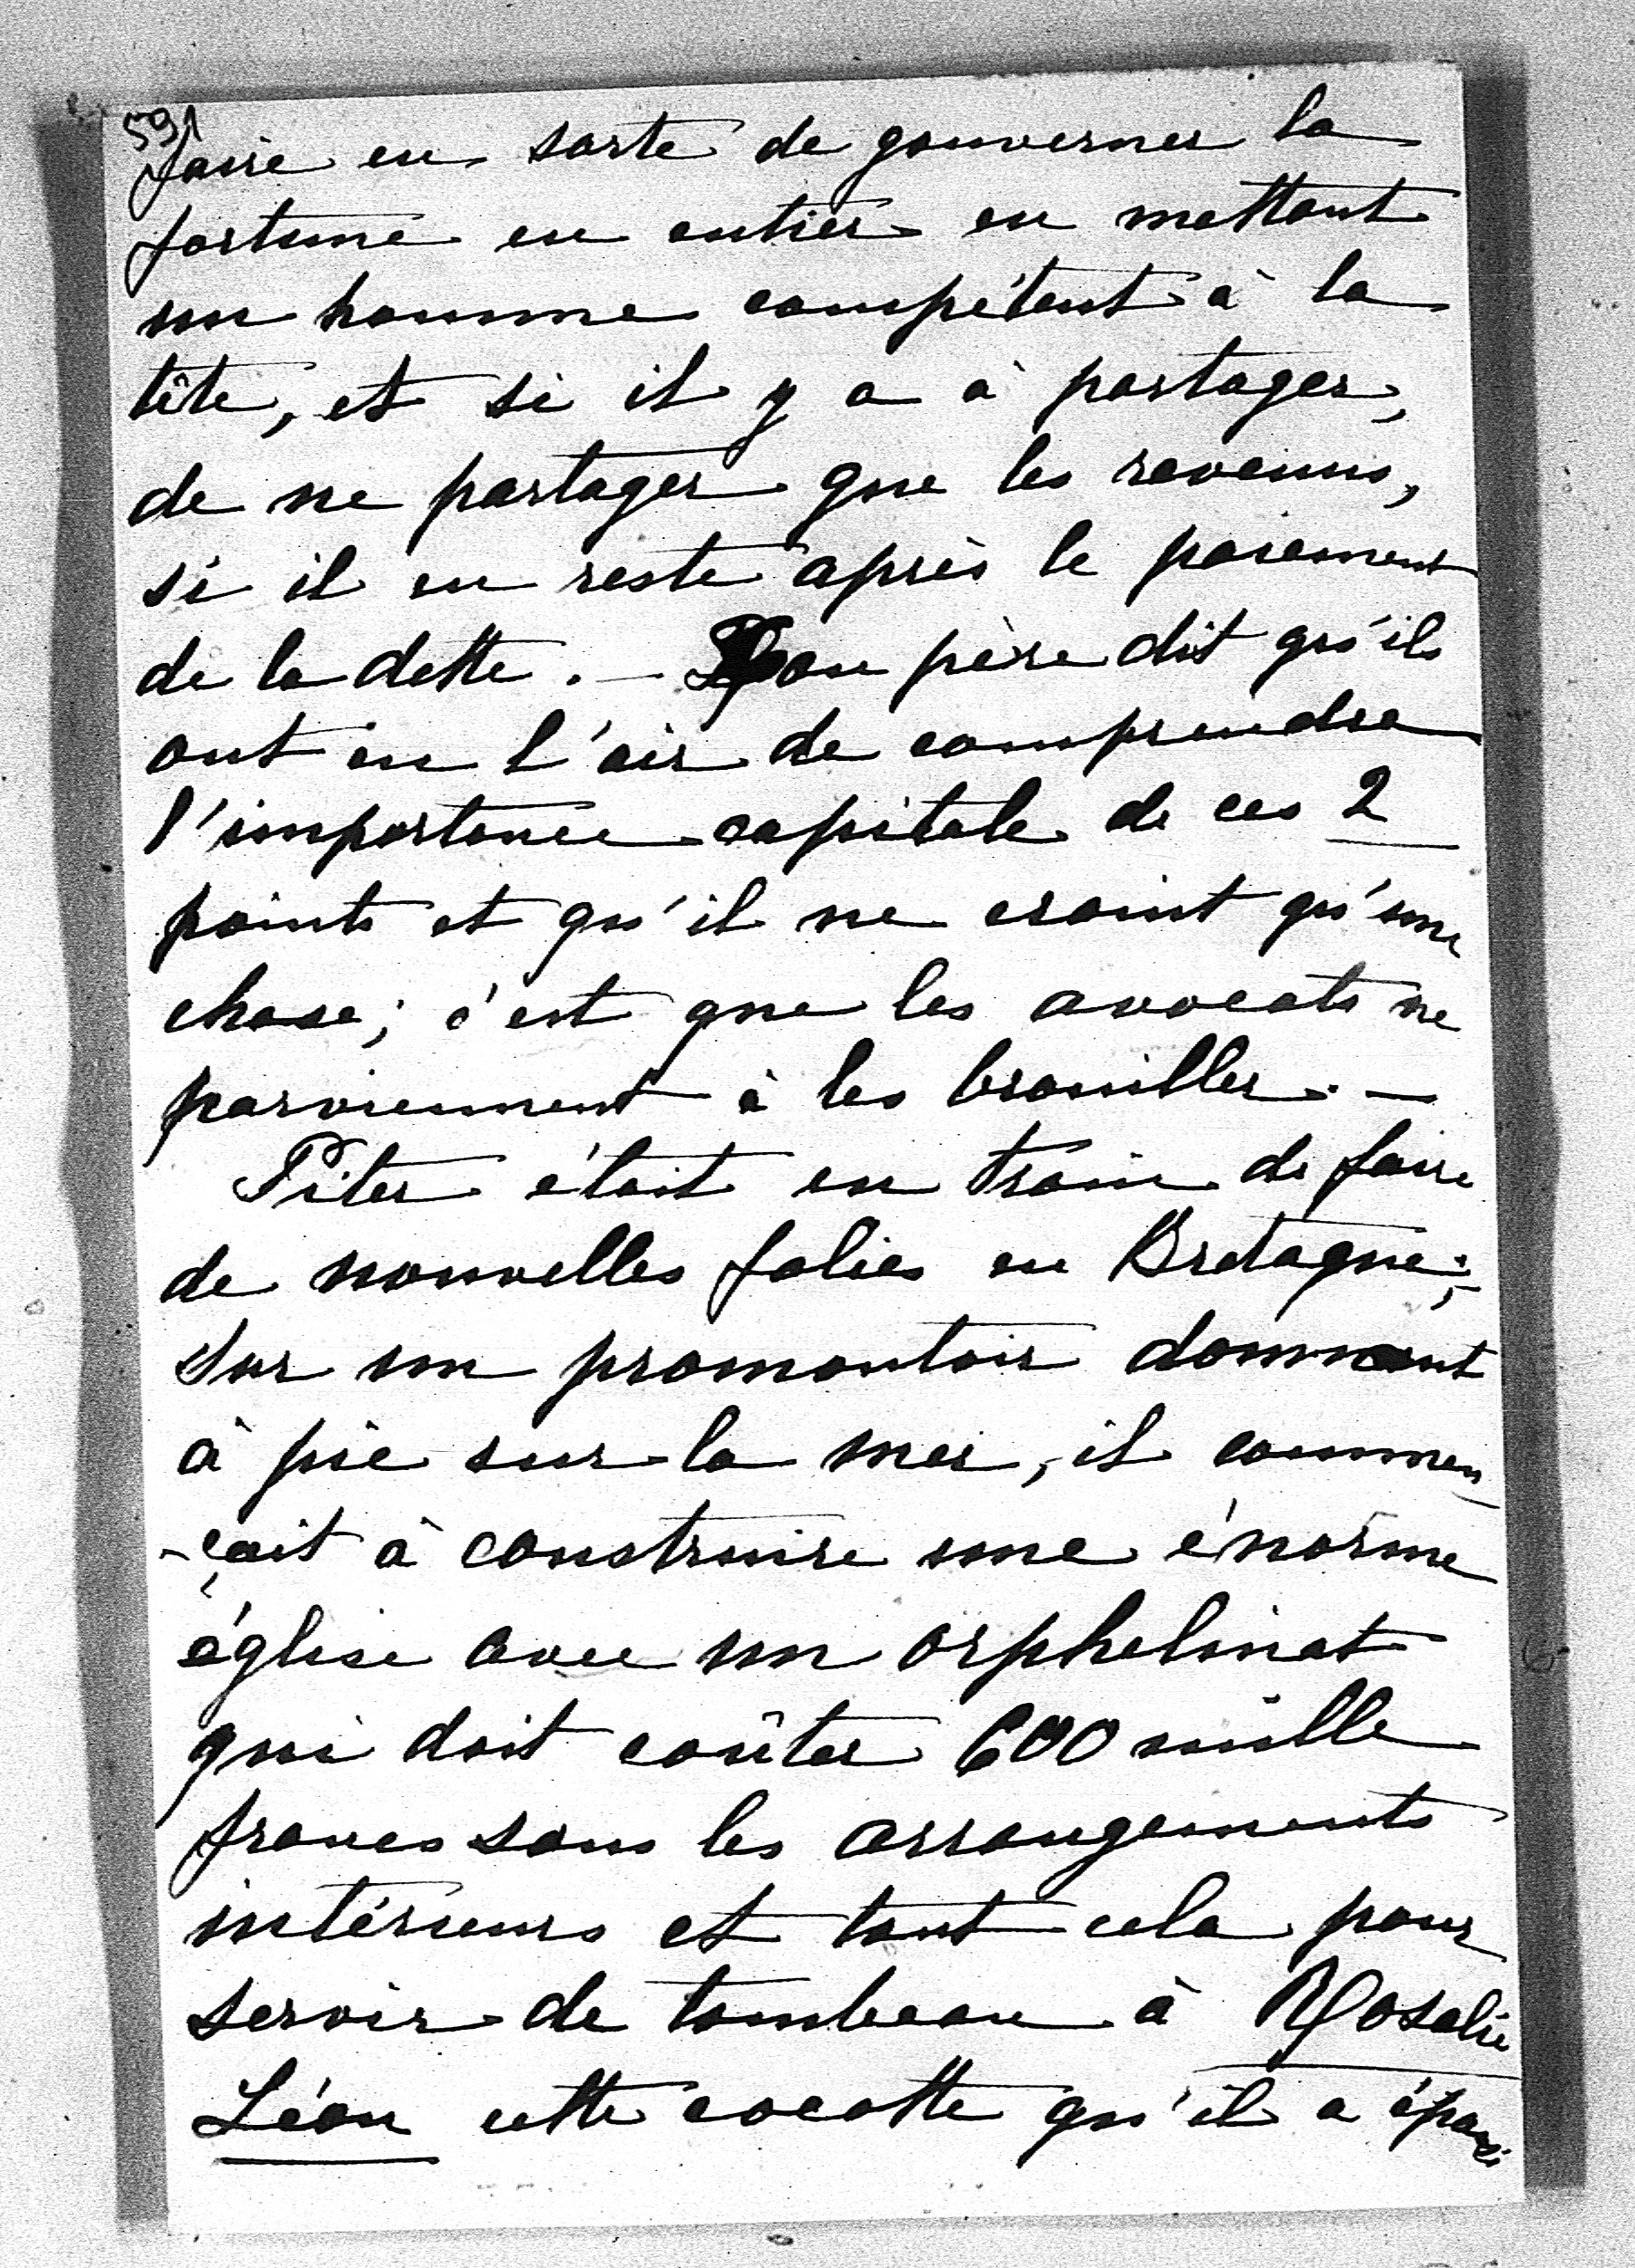 591
faire en sorte de gouverner la
fortune en entier en mettant
un homme compétent à la
tête, et si il y a à partager,
de ne partager que les revenus,
si il en reste après le paiement
de la dette. — Son père dit qu'ils
ont eu l'air de comprendre
l'importance capitale de ces 2
points et qu'il ne craint qu'une
chose; c'est que les avocats ne
parviennent à les brouiller. —
Piter était en train de faire
de nouvelles folies en Bretagne;
sur un promontoir donnant
à pic sur la mer, il commen
-çait à construire une énorme
église avec un orphelinat
qui doit coûter 600 mille
francs sans les arrangements
intérieurs et tout cela pour
servir de tombeau à Rosalie
Léon cette cocotte qu'il a épousé